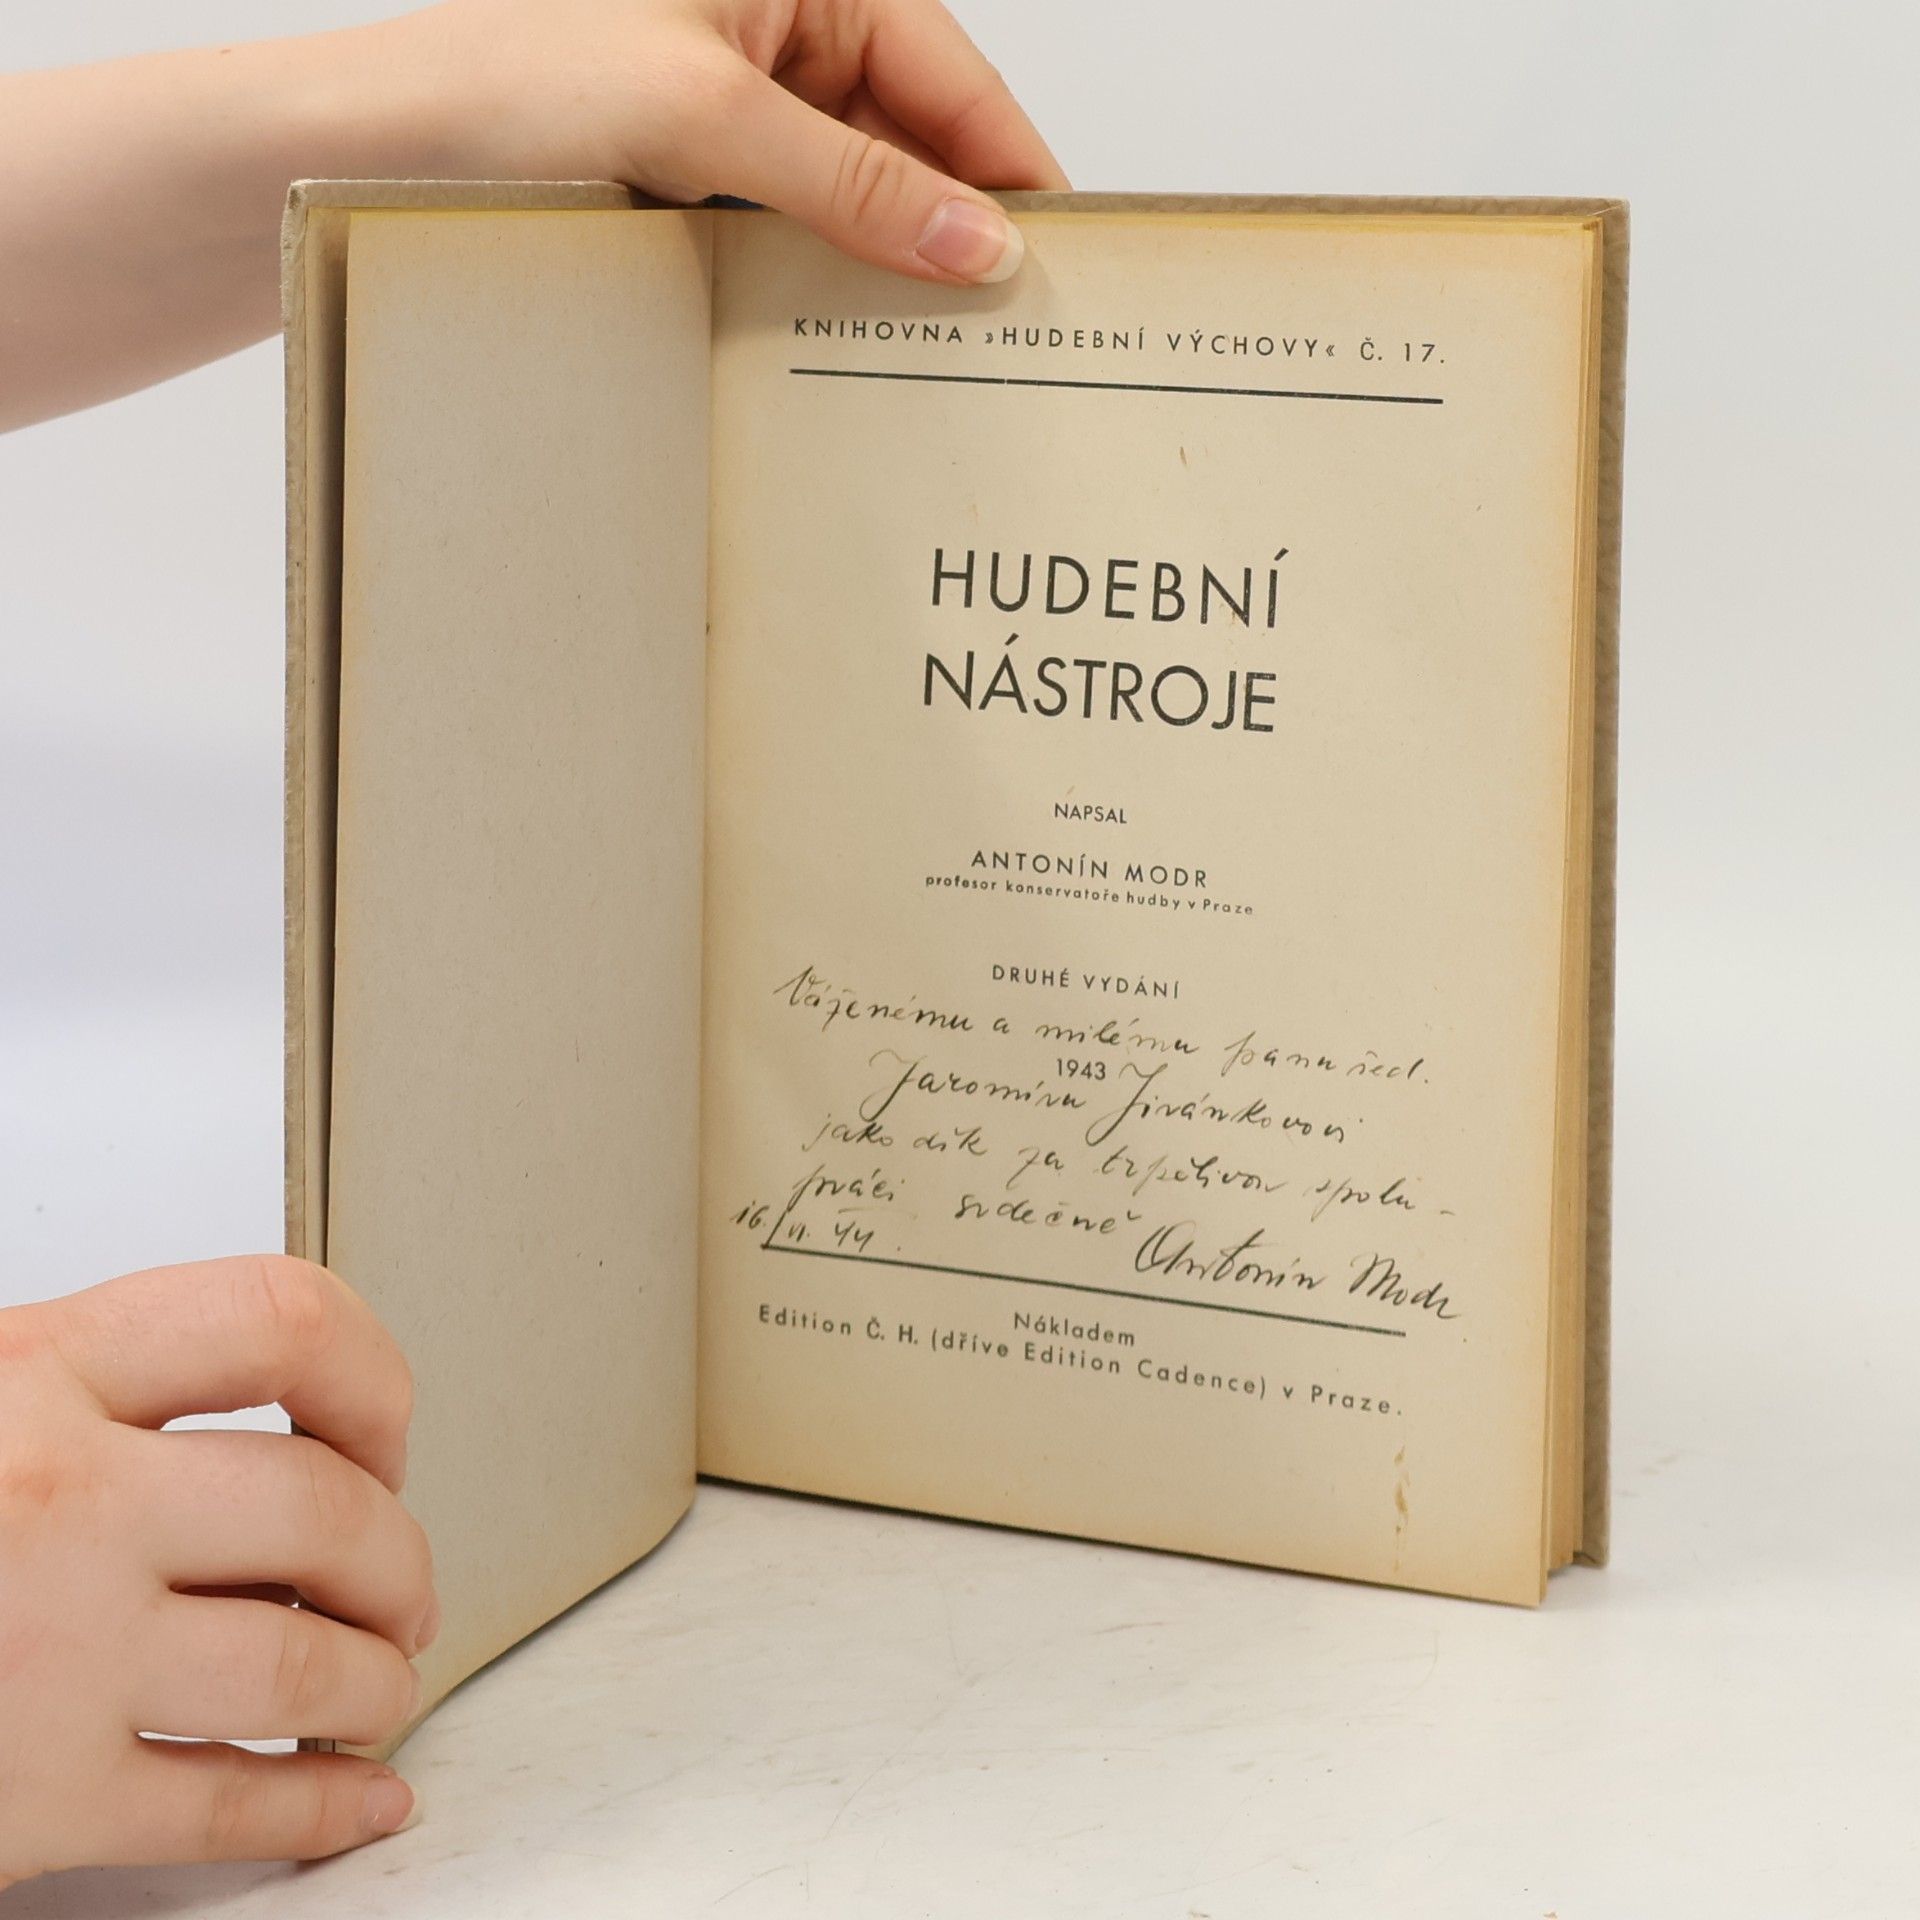 KNIHOVNA »HUDEBNÍ VÝCHOVY« Č. 17.
HUDEBNÍ
NÁSTROJE
NAPSAL
ANTONÍN MODR
profesor konservatoře hudby v Praze
DRUHÉ VYDÁNÍ
Váženému a milému panu řed.
1943
Jaromíru Jiránkovi
jako dík za trpělivou spolu-
práci srdečně Antonín Modr
16./VI. 44.
Nákladem
Edition Č. H. (dříve Edition Cadence) v Praze.